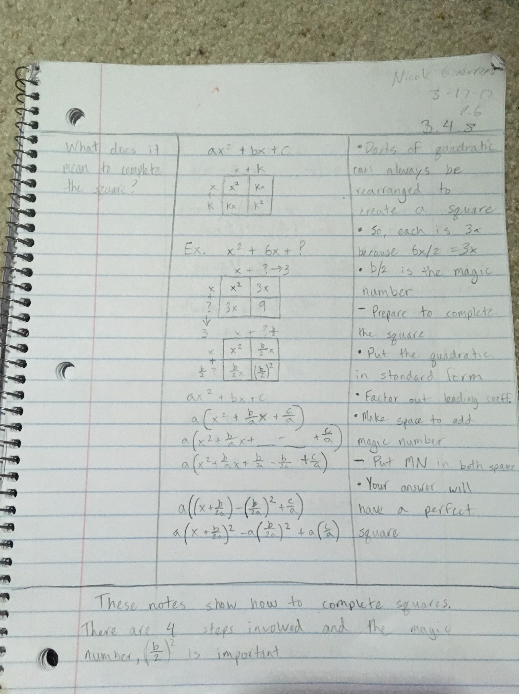 Nicole
3-17-17
P.6
3.4.3
What does it
mean to complete
the square?
ax² + bx + c
x + k
x x² kx
+
k kx k²
Ex. x² + 6x + ?
x + ?→3
x x² 3x
+
? 3x 9
↓
3
x + ?
x x² b/2x
+
b/2x (b/2)²
ax² + bx + c
a(x² + b/a x + c/a)
a(x² + b/a x + __ - __ + c/a)
a(x² + b/a x + b/a - b/2a + c/a)
a((x + b/2a) - (b/2a)² + c/a)
a(x + b/2a)² - a(b/2a)² + a(c/a)
• Parts of quadratic
can always be
rearranged to
create a square
• So, each is 3x
because 6x/2 = 3x
• b/2 is the magic
number
- Prepare to complete
the square
• Put the quadratic
in standard form
• Factor out leading coeff.
• Make space to add
magic number
- Put MN in both space
• Your answer will
have a perfect
square
These notes show how to complete squares.
There are 4 steps involved and the magic
number, (b/2)² is important